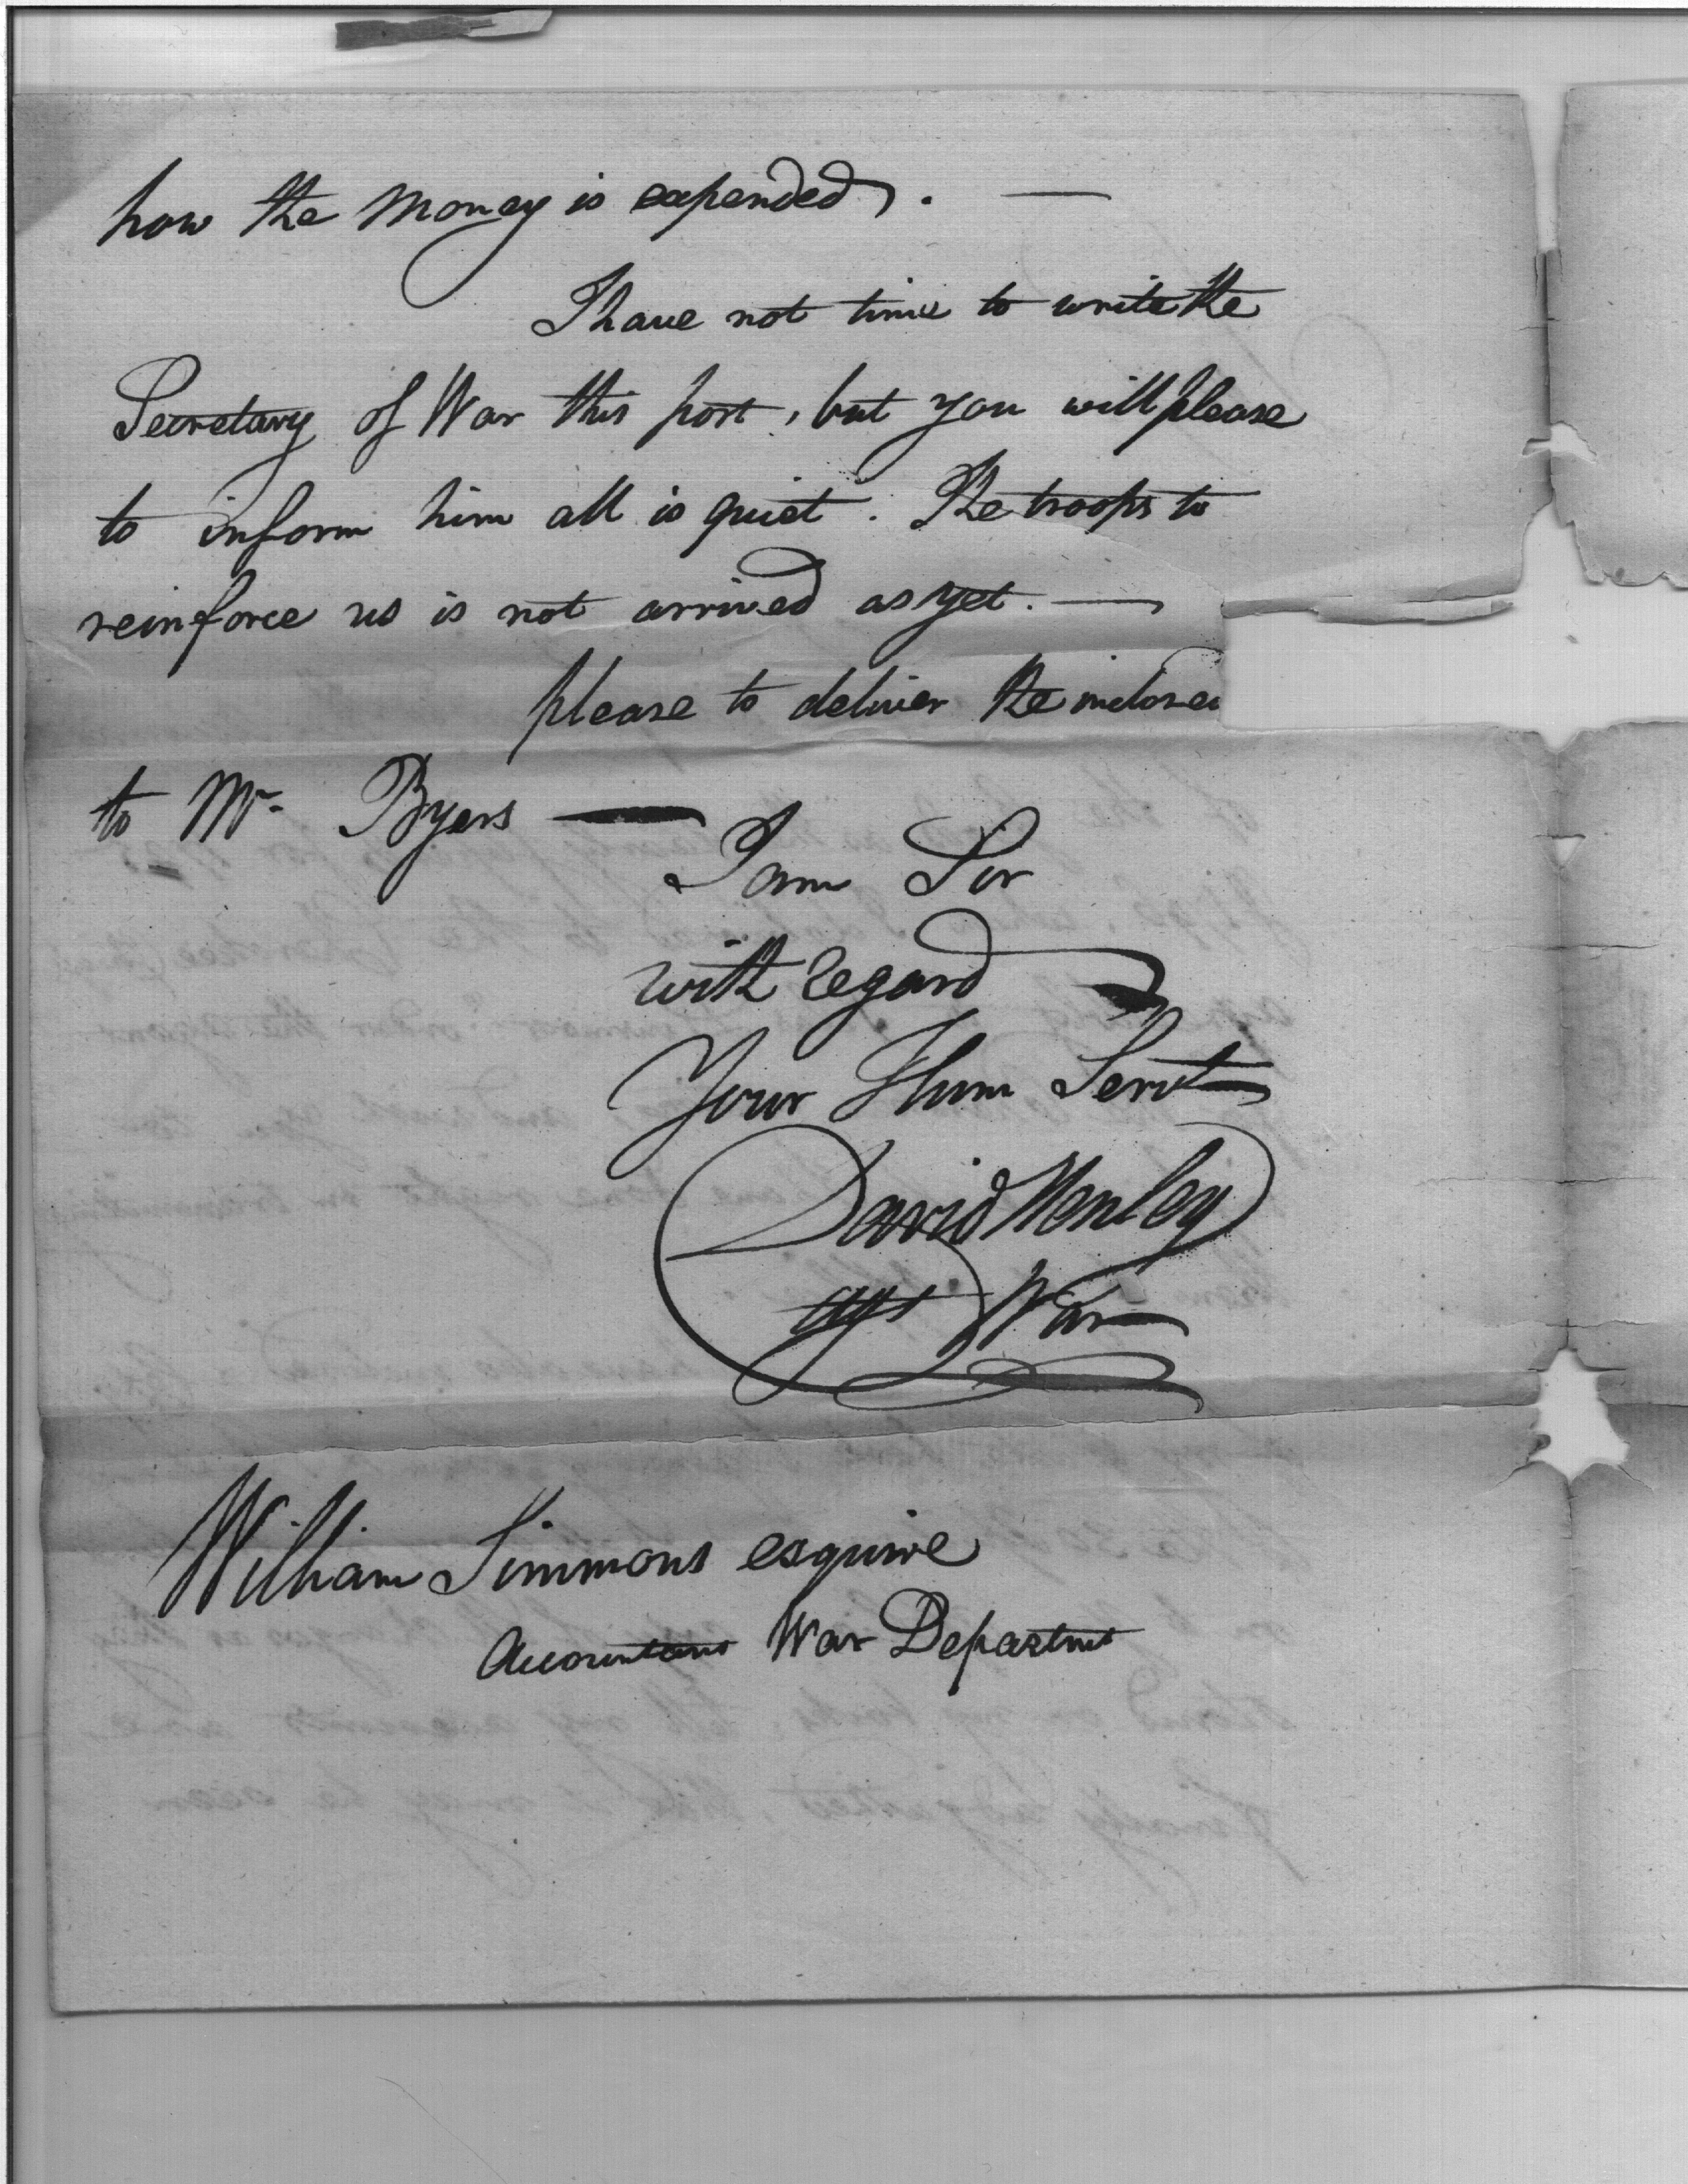 how the money is expended. —
I have not time to write the
Secretary of War this post, but you will please
to inform him all is quiet. The troops to
reinforce us is not arrived as yet. —
please to deliver the inclosed
to Mr. Byers —
I am Sir
with regard
Your Hum Servt
David Henley
agt War
William Simmons esquire
Accountant War Departmt